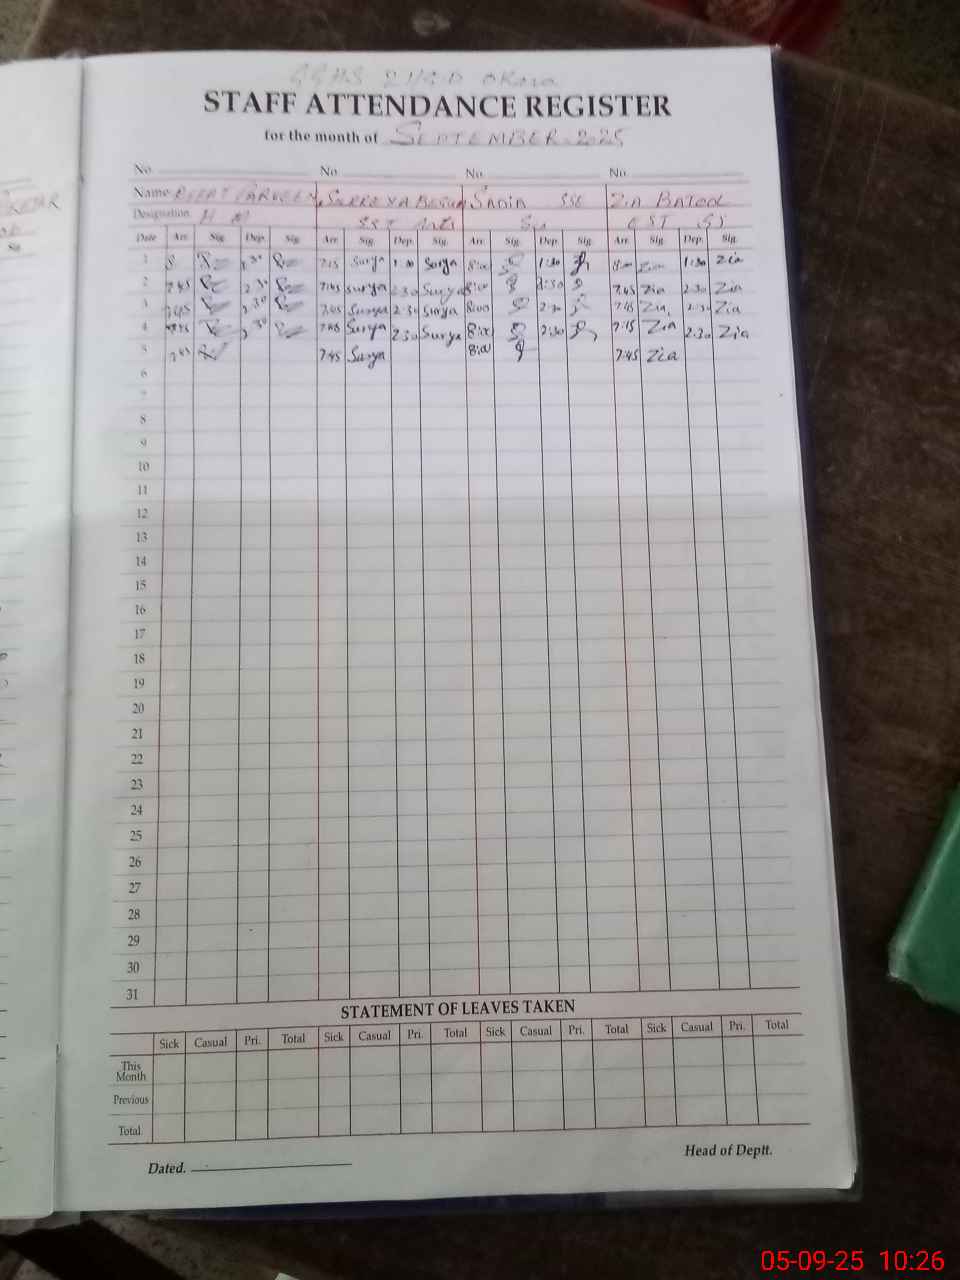 OKARA
STAFF ATTENDANCE REGISTER
for the month of SEPTEMBER-2025
No. No. No. No.
Name PARVEEN SURRAYA BEGUM SADIA SSE ZIA BATOOL
Designation H M SST Arts EST
Date Arr. Sig. Dep. Sig. Arr. Sig. Dep. Sig. Arr. Sig. Dep. Sig. Arr. Sig. Dep. Sig.
1 8 1:30 7:45 Surya 1:30 Surya 8:00 1:30 8:00 Zia 1:30 Zia
2 7:45 2:30 7:45 Surya 2:30 Surya 8:00 2:30 7:45 Zia 2:30 Zia
3 7:45 2:30 7:45 Surya 2:30 Surya 8:00 2:30 7:45 Zia 2:30 Zia
4 7:45 2:30 7:45 Surya 2:30 Surya 8:00 2:30 7:45 Zia 2:30 Zia
5 7:45 7:45 Surya 8:00 7:45 Zia
6
7
8
9
10
11
12
13
14
15
16
17
18
19
20
21
22
23
24
25
26
27
28
29
30
31
STATEMENT OF LEAVES TAKEN
Sick Casual Pri. Total Sick Casual Pri. Total Sick Casual Pri. Total Sick Casual Pri. Total
This
Month
Previous
Total
Dated. Head of Deptt.
05-09-25 10:26